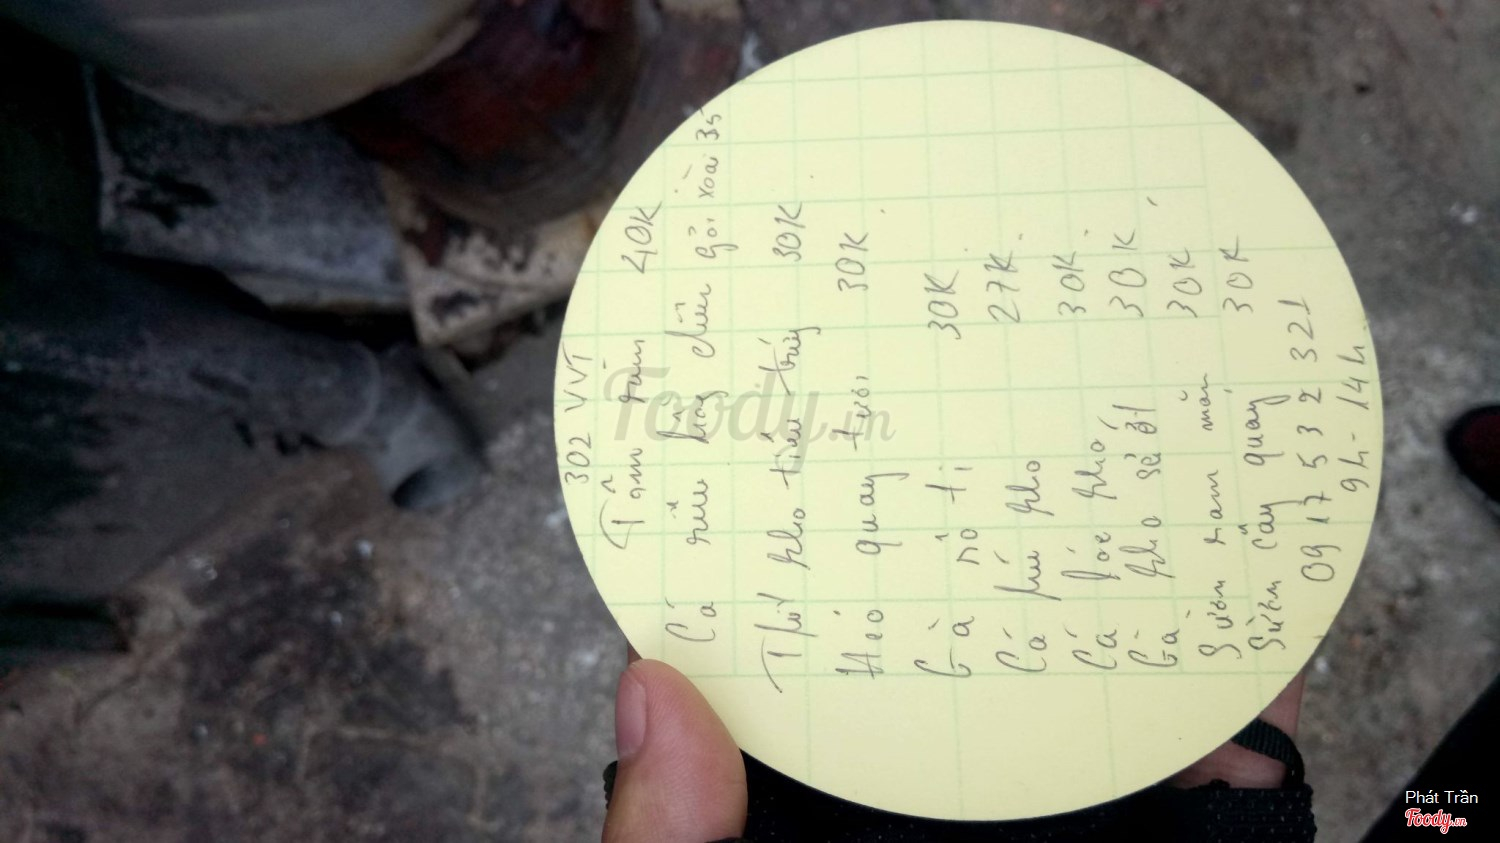 302 VVT
Tôm rằm 40K
Cá rêu hay chiên gỏi xoài 35
Thịt kho tiêu trứng 30K
Heo quay tươi 30K
Gà rô ti 30K
Cá hú kho 27K
Cá lóc kho 30K
Gà kho sả ớt 30K
Sườn ram mặn 30K
Sườn cây quay 30K
0917532321
9h-14h
Foody.vn
Phát Trần
Foody.vn